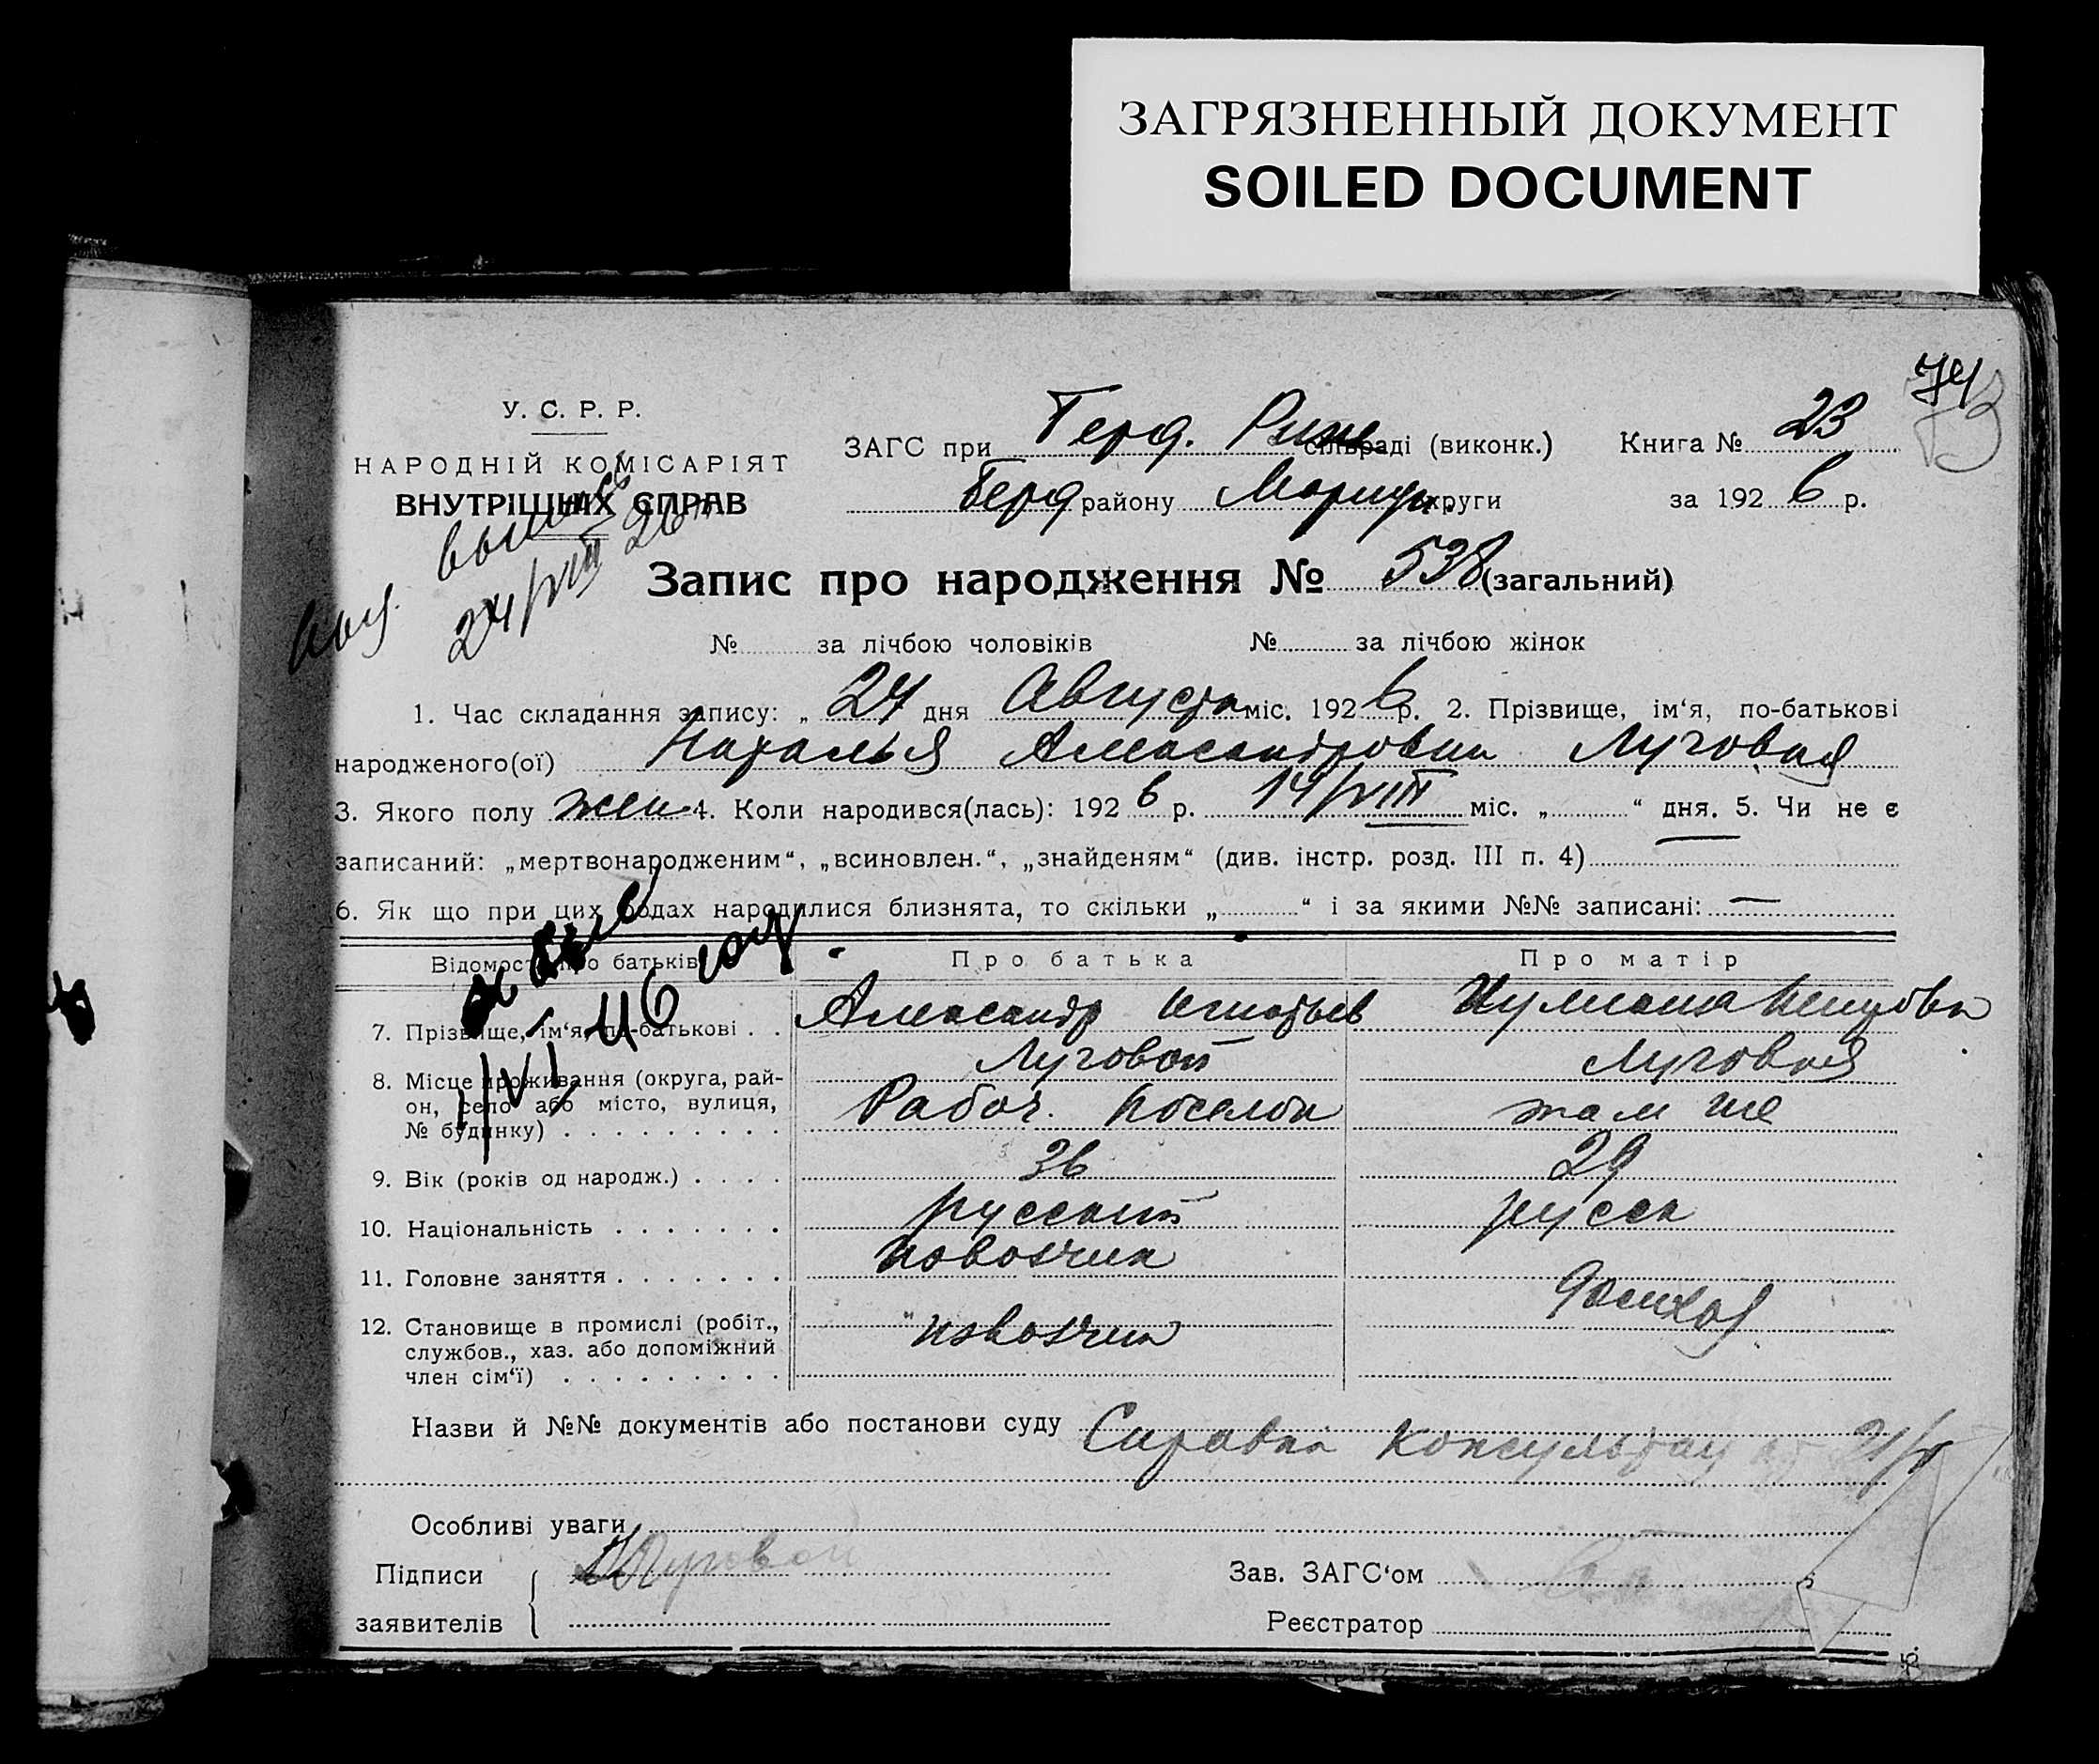 ЗАГРЯЗНЕННЫЙ ДОКУМЕНТ
SOILED DOCUMENT
74
У. С. Р. Р.
НАРОДНІЙ КОМІСАРІЯТ
ВНУТРІШНІХ СПРАВ
ЗАГС при Берд. Рике сільраді (виконк.) Книга № 23
Берд району Мариуп. округи за 1926 р.
24/VIII 26
Запис про народження № 538 (загальний)
№ за лічбою чоловіків № за лічбою жінок
1. Час складання запису: „ 24 дня Августа міс. 1926 р. 2. Прізвище, ім‘я, по-батькові
народженого(ої) Наталья Александровна Луговая
3. Якого полу жен 4. Коли народився(лась): 1926 р. 14/VIII міс. „ “ дня. 5. Чи не є
записаний: „мертвонародженим“, „всиновлен.“, „знайденям“ (див. інстр. розд. III п. 4) —
6. Як що при цих родах народилися близнята, то скільки „ “ і за якими №№ записані: —
Відомості про батьків Про батька Про матір
7. Прізвище, ім‘я, по-батькові . . Александр Игнатьев
Луговой Луговая
8. Місце проживання (округа, рай-
он, село або місто, вулиця,
№ будинку) . . . . . . . . . Рабоч. поселок там же
9. Вік (років од народж.) . . . . 36 29
10. Національність . . . . . . . русский русск
11. Головне заняття . . . . . . .
12. Становище в промислі (робіт.,
службов., хаз. або допоміжний
член сім‘ї) . . . . . . . . . извозчик домхоз
Назви й №№ документів або постанови суду Справка консультац
Особливі уваги
Підписи Луговой Зав. ЗАГС‘ом
заявителів Реєстратор